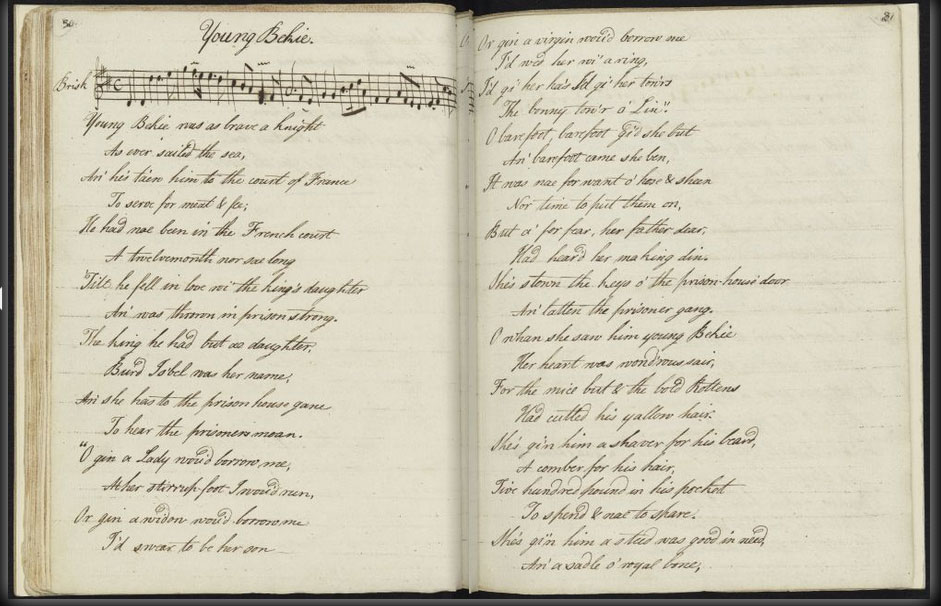 30
Young Bekie.
Brisk
Young Bekie was as brave a knight
As ever sailed the sea,
An' he's ta'en him to the court of France
To serve for meat & fee;
He had nae been in the French court
A twelvemonth nor sae long
Till he fell in love wi' the king's daughter
An' was thrown in prison strong.
The king he had but ae daughter,
Burd Isbel was her name;
An' she has to the prison house gane
To hear the prisoners moan.
"O gin a Lady wou'd borrow me,
At her stirrup-foot I wou'd run,
Or gin a widow wou'd borrow me
I'd swear to be her son
31
Or gin a virgin wou'd borrow me
I'd wes her wi' a ring,
I'd gi' her ha's I'd gi' her tow'rs
The bonny tow'r o' Lin".
O barefoot, barefoot gi'd she but
An' barefoot came she ben,
It was nae for want o' hose & sheen
Nor time to put them on,
But a' for fear, her father dear,
Had heard her making din.
She's stown the keys o' the prison-house door
An' latten the prisoner gang.
O whan she saw him young Bekie
Her heart was wondrous sair,
For the mice but & the bold Rottens
Had cutted his yallow hair.
She's gi'n him a shaver for his beard,
A comber for his hair,
Five hundred pound in his pocket
To spend & nae to spare.
She's gi'n him a steed was good in need,
An' a sadle o' royal bone,